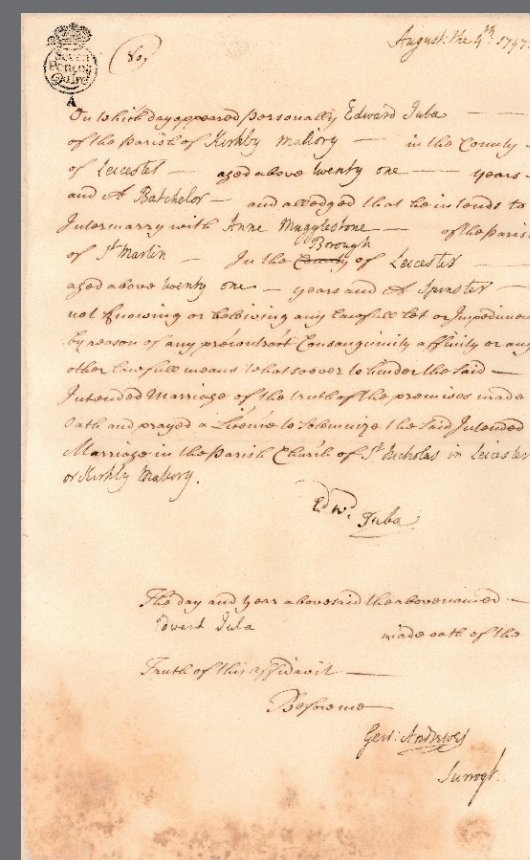 August the 4th 1797
80
Seven
Pence
Quire
A
On which day appeared personally Edward Juba
of the parish of Kirkby Mallory in the County
of Leicester aged above twenty one years
and A Batchelor and alledged that he intends to
Intermarry with Anne Mugglestone of the parish
Borough
of St Martin In the County of Leicester
aged above twenty one years and A Spinster
not knowing or believing any lawfull let or Impediment
by reason of any precontract Consanguinity affinity or any
other lawfull means whatsoever to hinder the said
Intended Marriage of the truth of the premises made
Oath and prayed a Licence to Solemnize the said Intended
Marriage in the parish Church of St Nicholas in Leicester
or Kirkby Mallory.
Edwd Juba
The day and year abovesaid the abovenamed
Edward Juba made oath of the
Truth of this affidavit
Before me
Gerrd Andrewes
Surrogt.